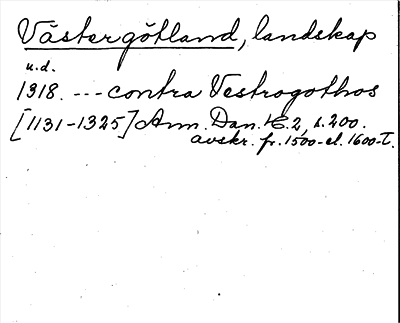 Västergötland, landskap
u.d.
1318. --- contra Vestrogothos
[1131-1325] Ann. Dan. K. 2, s. 200.
avskr. fr. 1500- el. 1600-t.